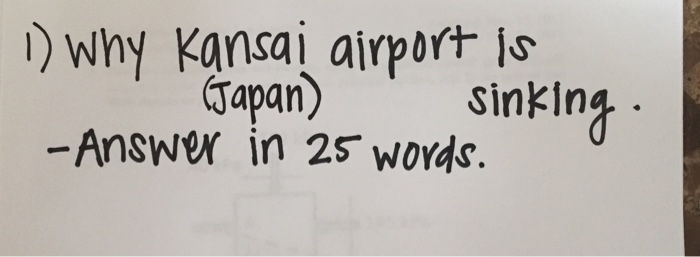 1) Why Kansai airport is
(Japan) sinking.
-Answer in 25 words.